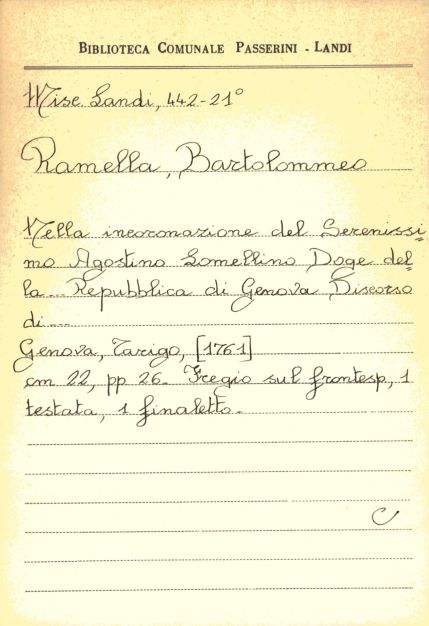 BIBLIOTECA COMUNALE PASSERINI - LANDI
Misc Landi, 442-21°
Ramella, Bartolommeo
Nella incoronazione del Serenissi=
mo Agostino Lomellino Doge del=
la... Repubblica di Genova Discorso
di...
Genova, Tarigo, [1761]
cm 22, pp 26. Fregio sul frontesp, 1
testata, 1 finaletto.
C